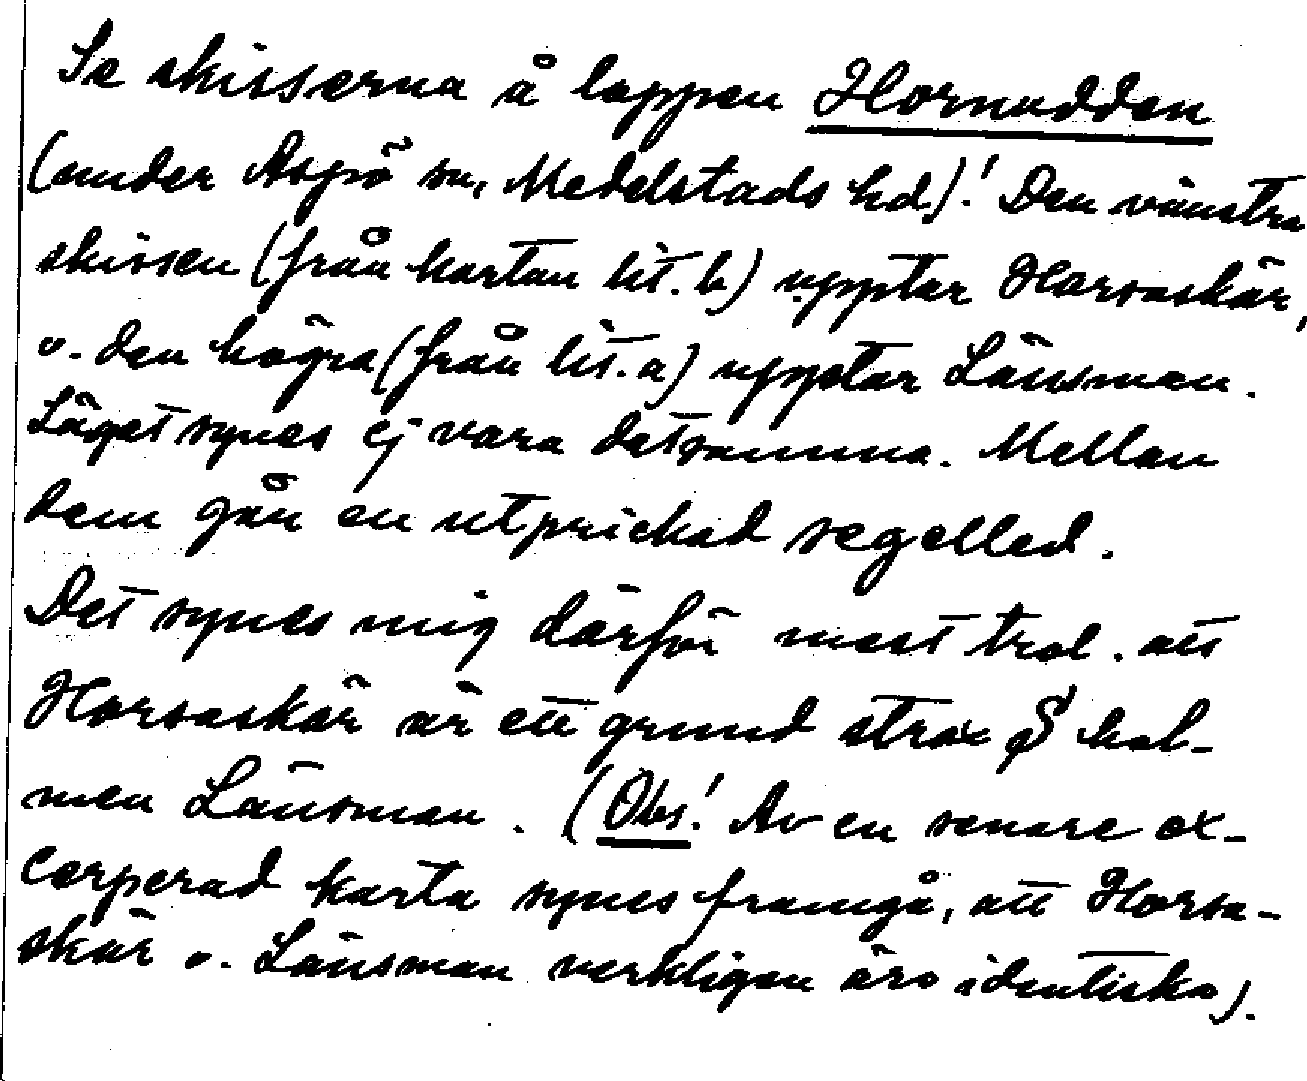 Se skisserna å lappen Hornudden
(under Aspö sn, Medelstads hd)! Den vänstra
skissen (från kartan lit. b) upptar Horsaskär,
o. den högra (från lit. a) upptar Länsman.
Läget synes ej vara detsamma. Mellan
dem går en utprickad segelled.
Det synes mig därför mest trol. att
Horsaskär är ett grund strax S hol-
men Länsman. (Obs! Av en senare ex-
cerperad karta synes framgå, att Horsa-
skär o. Länsman verkligen äro identiska).